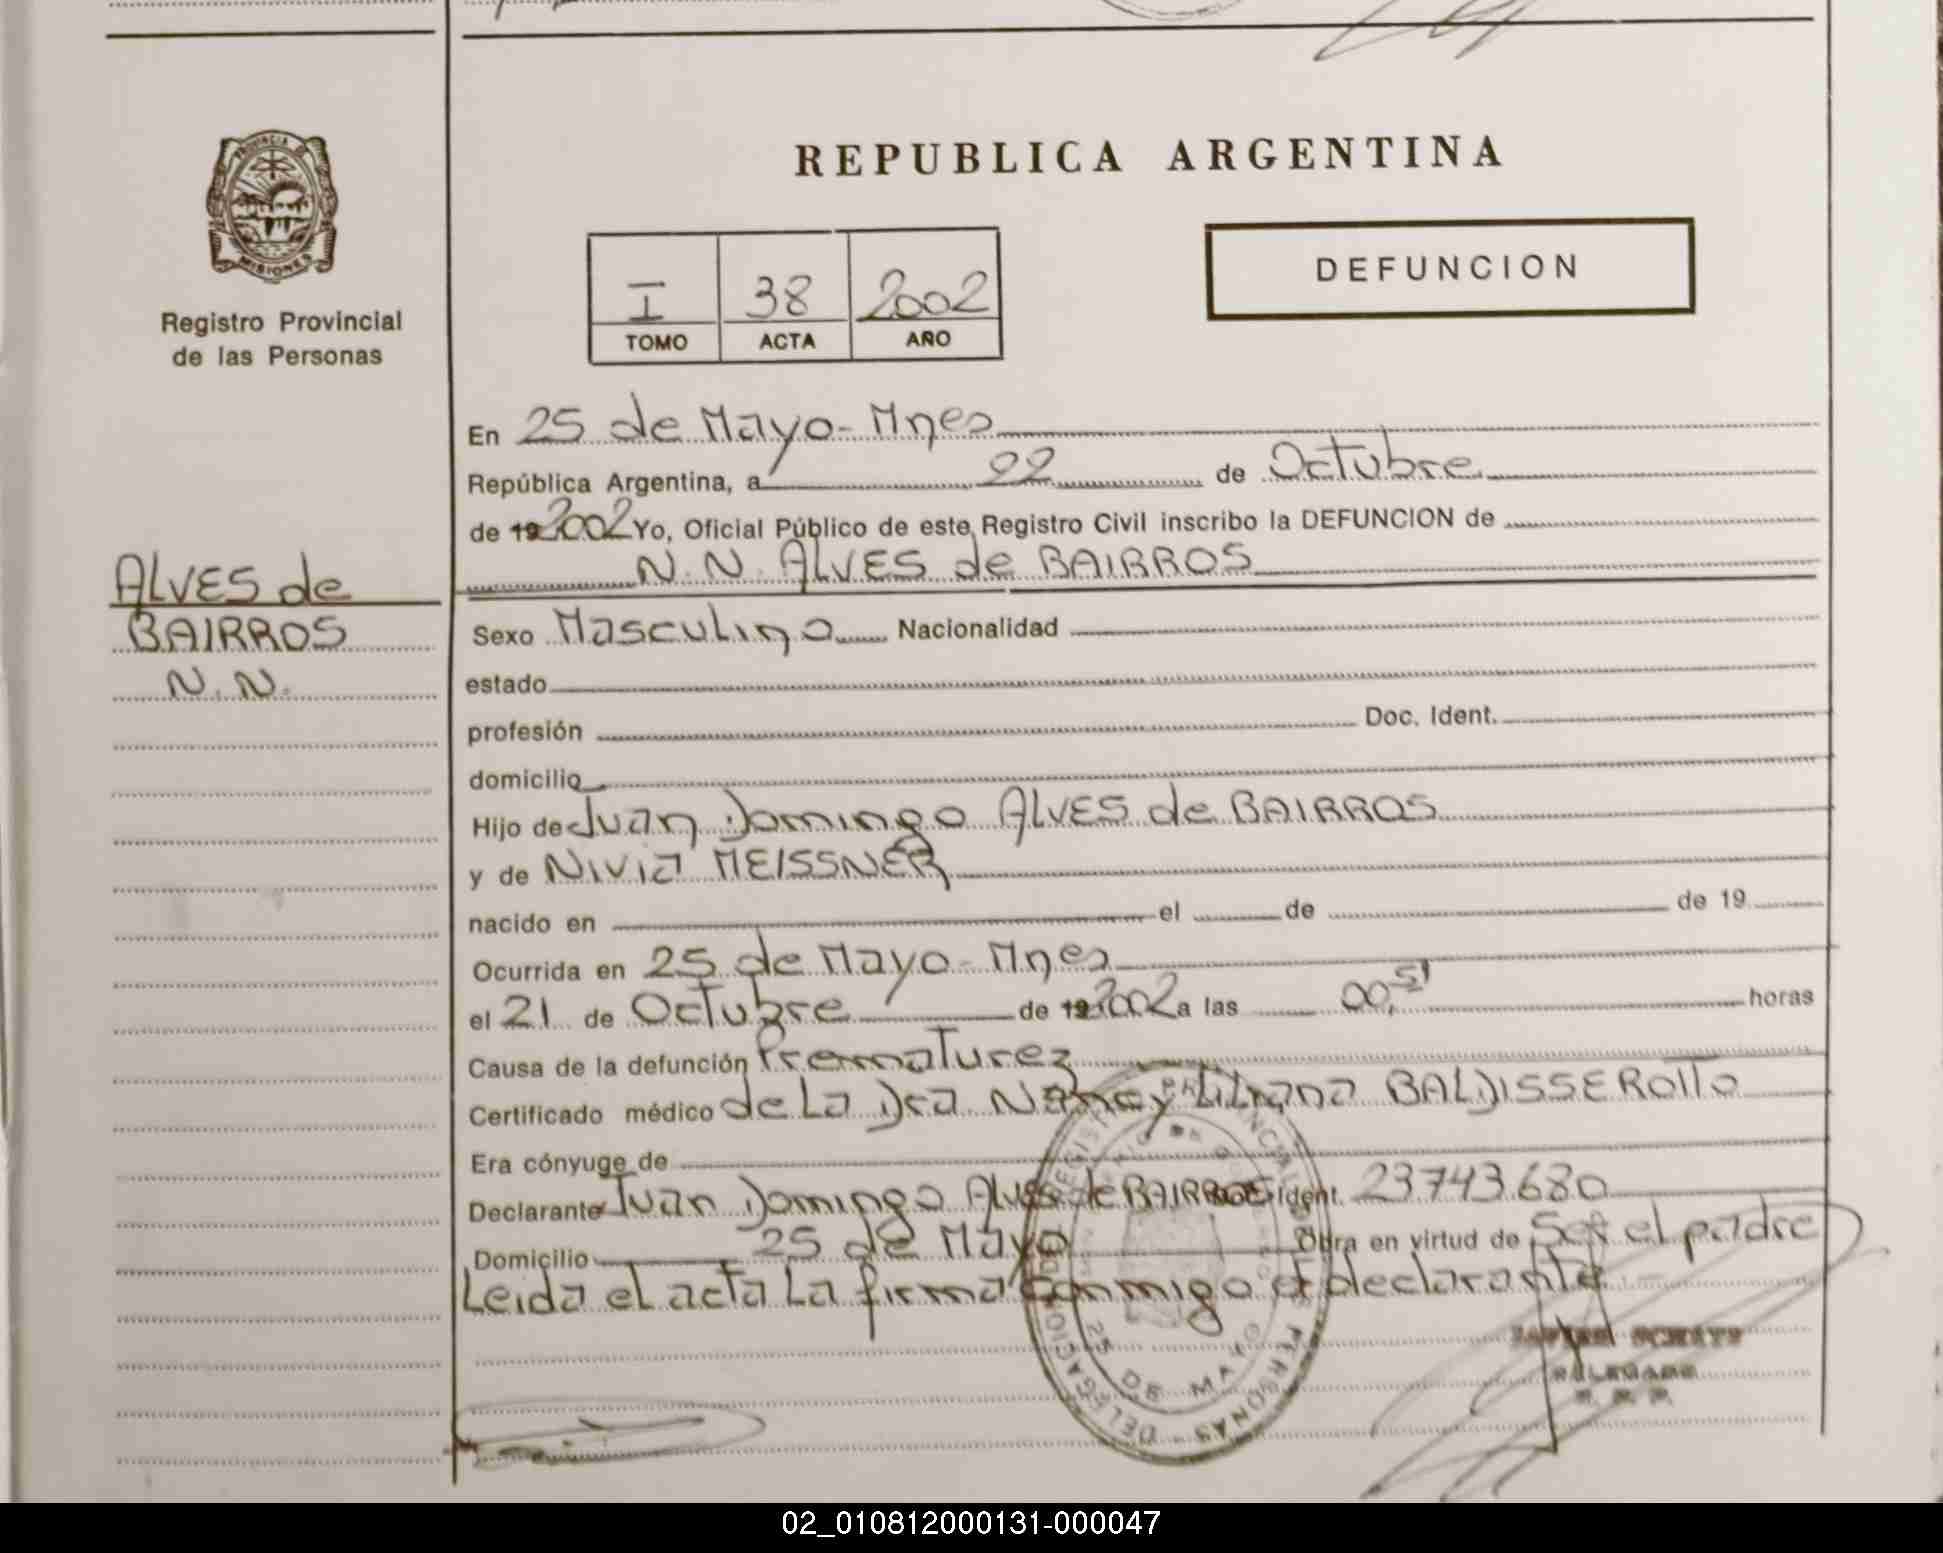 PROVINCIA DE
MISIONES
Registro Provincial
de las Personas
ALVES de
BAIRROS
N.N.
REPUBLICA ARGENTINA
I 38 2002
TOMO ACTA AÑO
DEFUNCION
En 25 de Mayo - Mnes
República Argentina, a 22 de Octubre
de 192002 Yo, Oficial Público de este Registro Civil inscribo la DEFUNCION de
N.N. ALVES de BAIRROS
Sexo Masculino Nacionalidad
estado
profesión Doc. Ident.
domicilio
Hijo de Juan Domingo ALVES de BAIRROS
y de Nivia MEISSNER
nacido en el de de 19
Ocurrida en 25 de Mayo - Mnes
el 21 de Octubre de 192002 a las 00,51 horas
Causa de la defunción Prematurez
Certificado médico de La Dra Nancy Liliana BALDISSEROTTO
Era cónyuge de
Declarante Juan Domingo Alves de BAIRROS Ident. 23743.680
Domicilio 25 de Mayo Obra en virtud de Ser el padre
Leida el acta La firma conmigo el declarante
DELEGACION 25 DE MAYO
DELEGADO
02_010812000131-000047